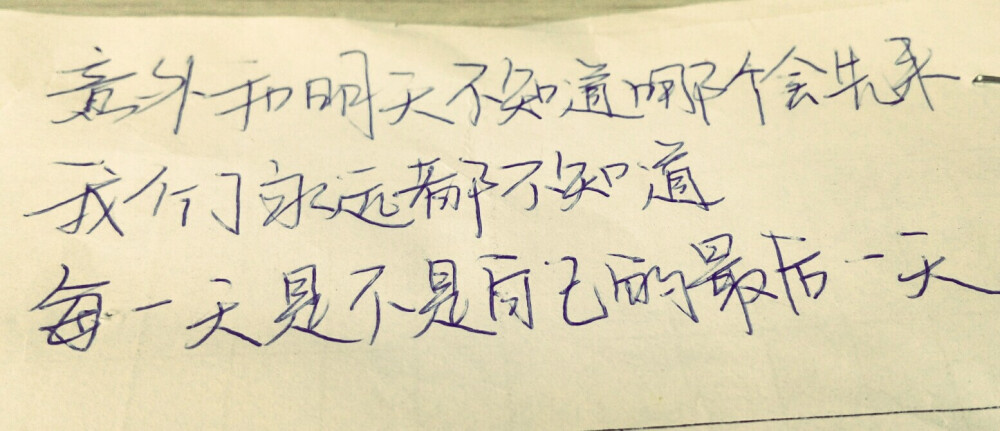 意外和明天不知道哪个会先来
我们永远都不知道
每一天是不是自己的最后一天